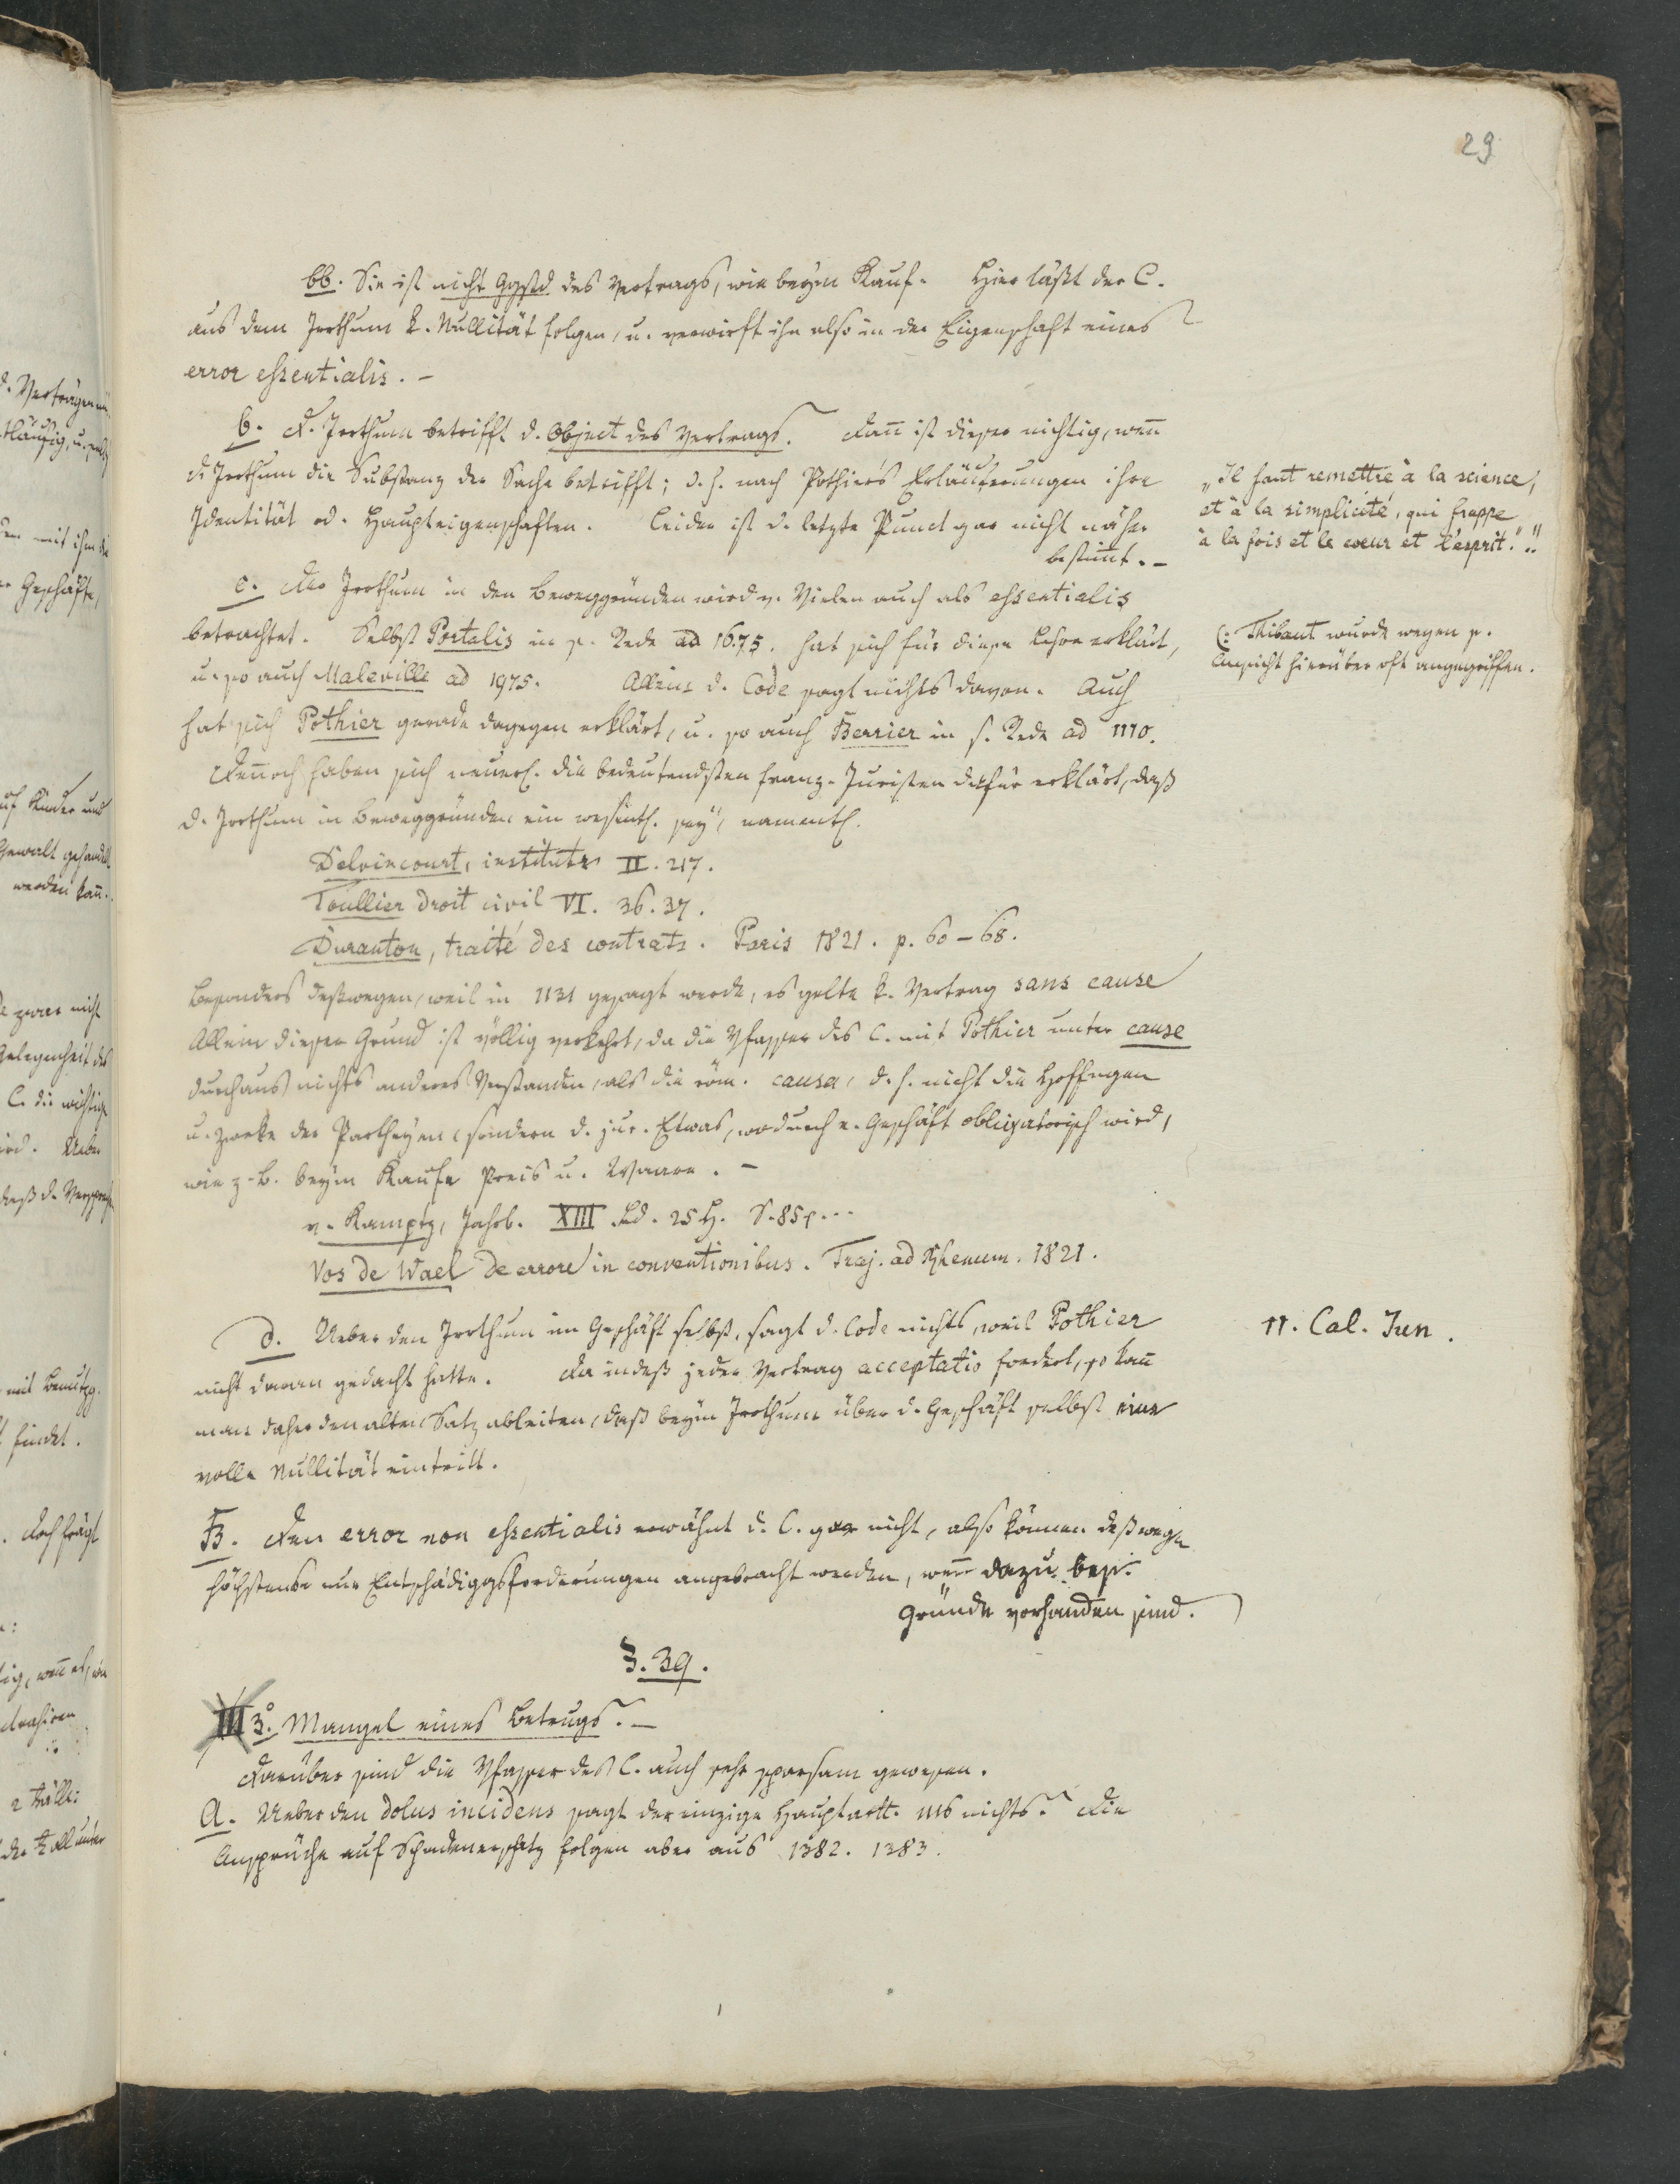 29
bb. Sie ist nicht Ggstd des Vertrags, wie beym Kauf. Hier läßt der C.
aus dem Irrthum k. Nullität folgen, u. verwirft ihn also in der Eigenschaft eines
error essentialis. –
b. D. Irrthum betrifft d. Object des Vertrags. Dann ist dieser nichtig, wenn
d. Irrthum die Substanz der Sache betrifft; d. h. nach Pothier's Erläuterungen ihre
Identität od. Haupteigenschaften. Leider ist d. letzte Punct gar nicht näher
bestimmt. –
„Il faut remettre à la science,
et à la simplicité, qui frappe
à la fois et le coeur et l'esprit."!!
c. Der Irrthum in den Beweggründen wird v. Vielen auch als essentialis
betrachtet. Selbst Portalis in s. Rede ad 1675. hat sich für diese Lehre erklärt,
u. so auch Maleville ad 1975. Allein d. Code sagt nichts davon. Auch
hat sich Pothier gerade dagegen erklärt, u. so auch Berrier in s. Rede ad 1110.
(: Thibaut wurde wegen s.
Ansicht hierüber oft angegriffen.
Dennoch haben sich neuerl. die bedeutendsten franz. Juristen dafür erklärt, daß
d. Irrthum in Beweggründen ein wesentl. sey, namentl.
Delvincourt, institutes II. 217.
Toullier droit civil VI. 36. 37.
Duranton, traité des contrats. Paris 1821. p. 60–68.
besonders deßwegen, weil in 1131 gesagt werde, es gelte k. Vertrag sans cause
Allein dieser Grund ist völlig verkehrt, da die Vfasser des C. mit Pothier unter cause
durchaus nichts anderes verstanden, als die röm. causa, d. h. nicht die Hoffngen
u. Zwecke der Partheyen, sondern d. jur. Etwas, wodurch e. Geschäft obligatorisch wird,
wie z. B. beym Kaufe Preis u. Waare. –
v. Kamptz, Jahrb. XIII Bd. 25 H. S. 85 f...
Vos de Wael de errore in conventionibus. Traj. ad Rhenum. 1821.
d. Ueber den Irrthum im Geschäft selbst, sagt d. Code nichts, weil Pothier
nicht daran gedacht hatte. Da indeß jeder Vertrag acceptatio fordert, so kann
man daher den alten Satz ableiten, daß beym Irrthum über d. Geschäft selbst eine
volle Nullität eintritt.
11. Cal. Jun.
B. Den error non essentialis erwähnt d. C. gar nicht, also können deßwegen
höchstens nur Entschädiggsforderungen angebracht werden, wenn dazu bes.
Gründe vorhanden sind.
§. 39.
III 3.° Mangel eines Betrugs. –
Darüber sind die Vfasser des C. auch sehr sparsam gewesen.
A. Ueber den dolus incidens sagt der einzige Hauptart. 1116 nichts. Die
Ansprüche auf Schadenersatz folgen aber aus 1382. 1383.